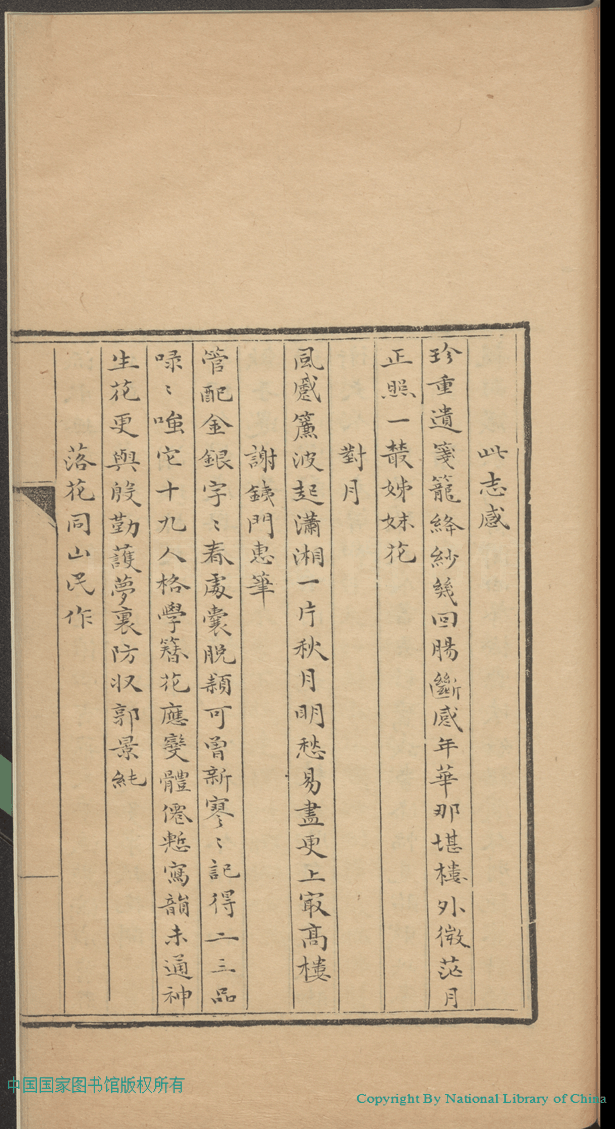 此志感
珍重遺箋籠絳紗幾回腸斷感年華那堪樓外微茫月
正照一叢姊妹花
對月
風蹙簾波起瀟湘一片秋月明愁易盡更上最高樓
謝銕門惠筆
管配金銀字〻春處囊脫穎可曾新寥〻記得二三品
喙〻嗤它十九人格學簪花應變體僊慙寫韻未通神
生花更與殷勤護夢裏防収郭景純
落花同山民作
中国国家图书馆版权所有
Copyright By National Library of China